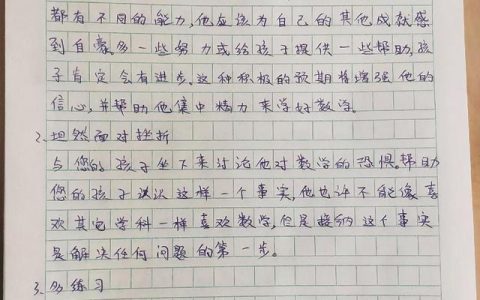 都有不同的能力,他应该为自己的其他成就感
到自豪。多一些努力或给孩子提供一些帮助,孩
子肯定会有进步。这种积极的预期将增强他的
信心,并帮助他集中精力来学好数学。
2、坦然面对挫折
与您的孩子坐下来讨论他对数学的恐惧。帮助
您的孩子承认这样一个事实,他也许不能像喜
欢其它学科一样喜欢数学,但是接纳这个事实
是解决任何问题的第一步。
3、多练习